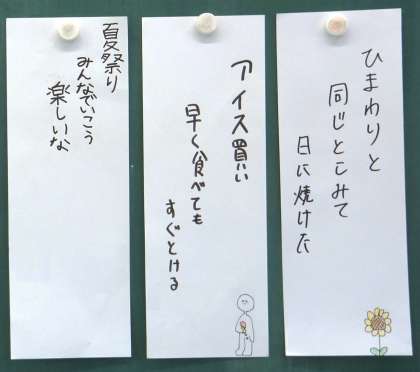 ひまわりと
同じとこみて
日に焼けた
アイス買い
早く食べても
すぐとける
夏祭り
みんなでいこう
楽しいな